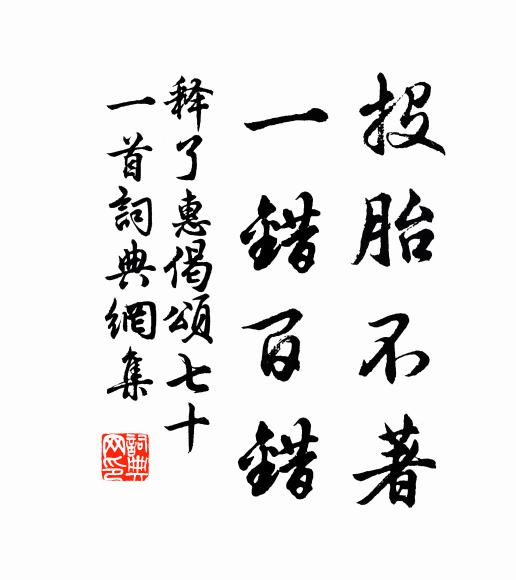 投胎不著
一錯百錯
释了惠偈頌七十
一首詞典網集
詞典
网印